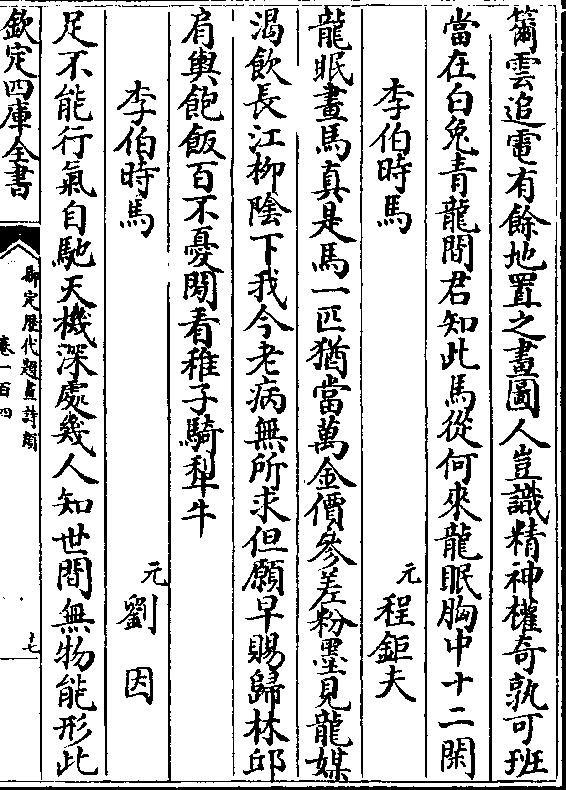 籋雲追電有餘地置之畫圖人豈識精神權奇孰可班
當在白兔青龍間君知此馬從何來龍眠胸中十二閑
李伯時馬　元程鉅夫
龍眠畫馬真是馬一匹猶當萬金價參差粉墨見龍媒
渴飲長江柳陰下我今老病無所求但願早賜歸林邱
肩輿飽飯百不憂閒看稚子騎犁牛
李伯時馬　元劉因
足不能行氣自馳天機深處幾人知世間無物能形此
欽定四庫全書
御定歷代題畫詩類
卷一百四
十七